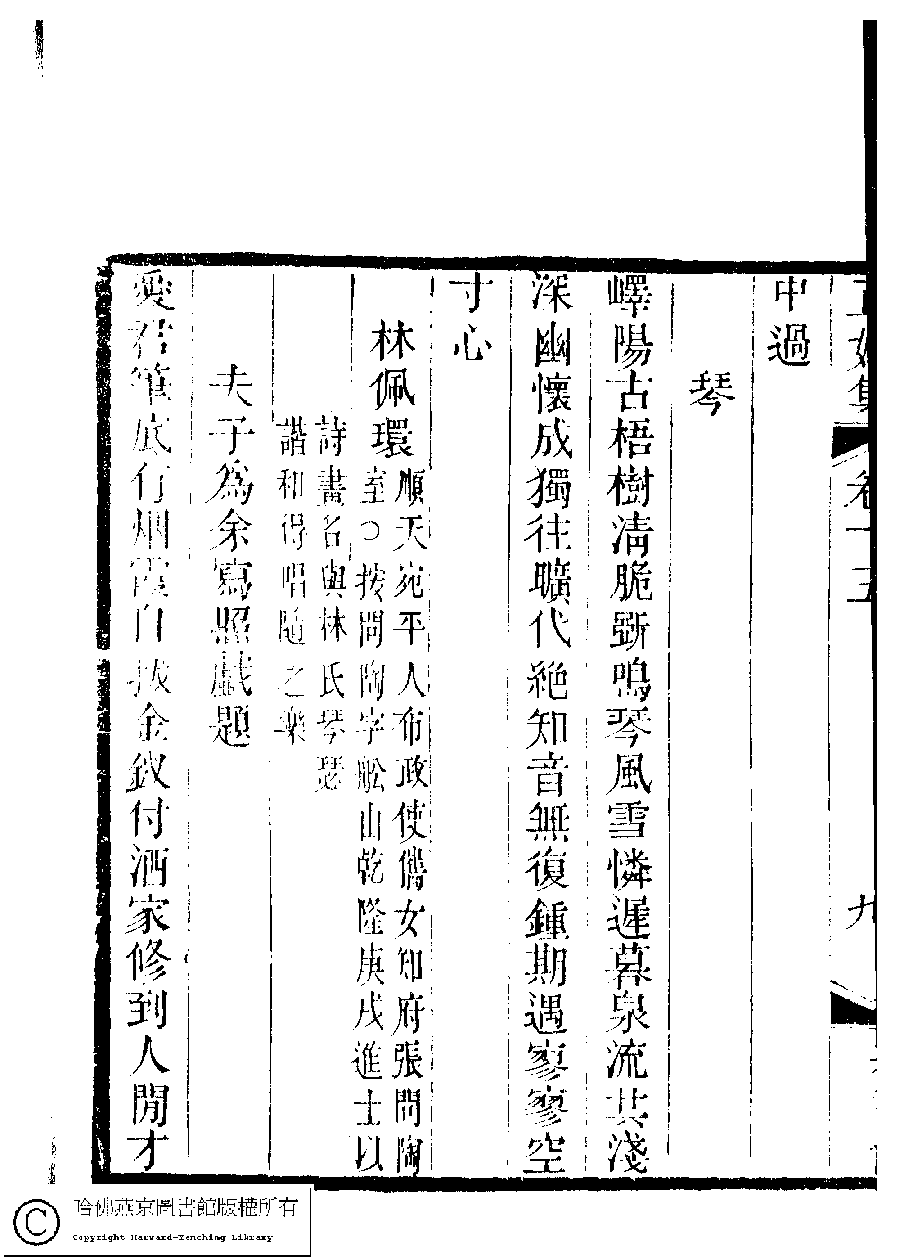 卷十五
九
中過
琴
嶧陽古梧樹淸脆斲鳴琴風雪憐遲暮泉流共淺
深幽懷成獨往曠代絶知音無復鍾期遇寥寥空
寸心
林佩環
順天宛平人布政使儁女知府張問陶
室○按問陶字船山乾隆庚戌進士以
詩畫名與林氏琴瑟
諧和得唱隨之樂
夫子爲余寫照戲題
愛君筆底有烟霞自拔金釵付酒家修到人閒才
哈佛燕京圖書館版權所有
Copyright Harvard-Yenching Library